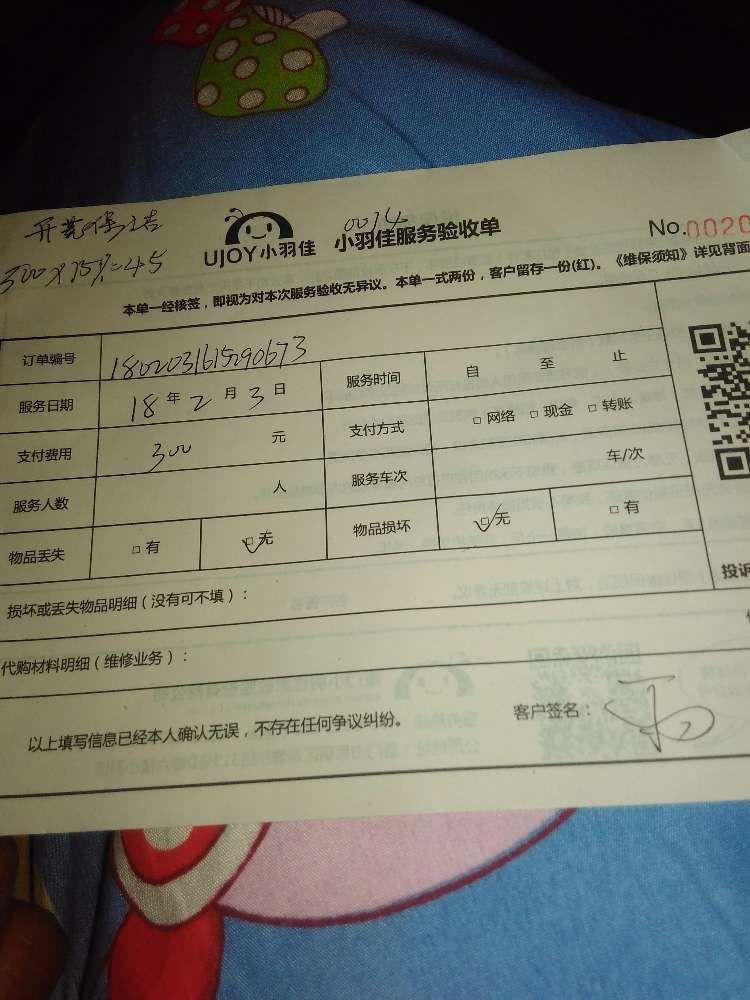 开荒保洁
0014
300×15%=45
UJOY小羽佳 小羽佳服务验收单 No.0020
本单一经核签，即视为对本次服务验收无异议。本单一式两份，客户留存一份(红)。《维保须知》详见背面
订单编号 1802031615290673
服务日期 18年2月3日 服务时间 自 至 止
支付费用 300 元 支付方式 □网络 □现金 □转账
服务人数 人 服务车次 车/次
物品丢失 □有 □无 物品损坏 □无 □有
损坏或丢失物品明细（没有可不填）：
投诉
代购材料明细（维修业务）：
以上填写信息已经本人确认无误，不存在任何争议纠纷。 客户签名：